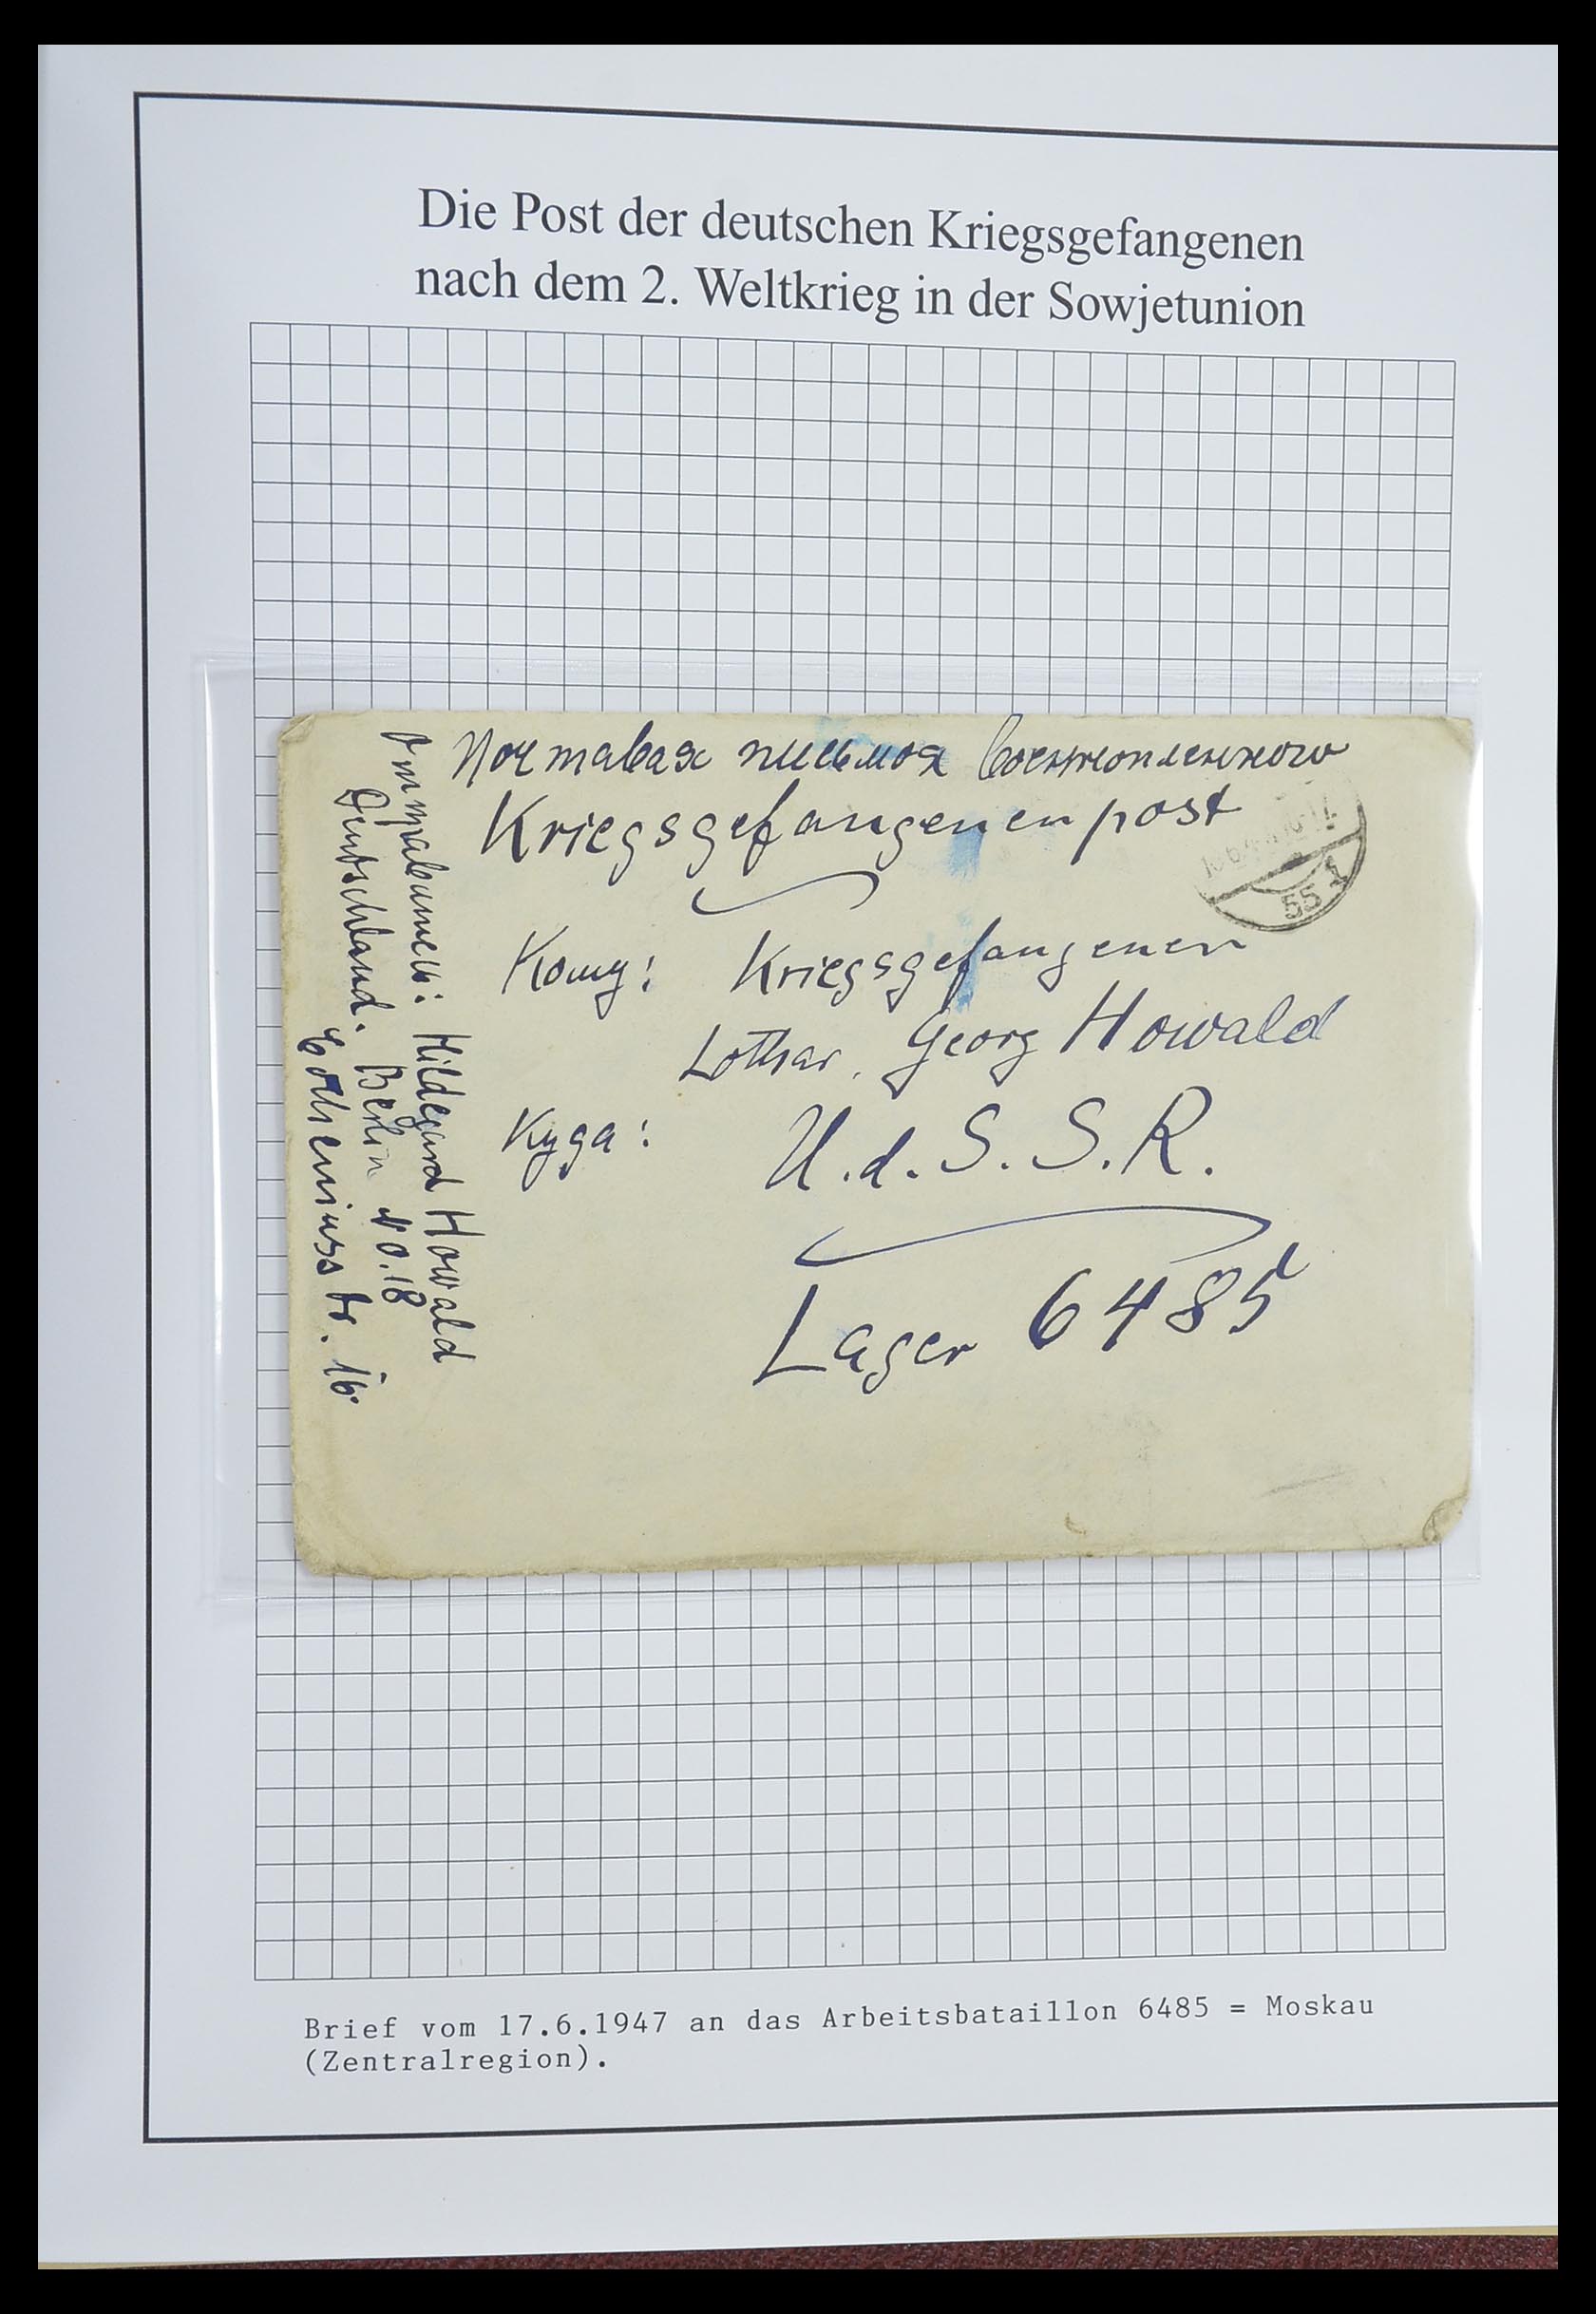 Die Post der deutschen Kriegsgefangenen
nach dem 2. Weltkrieg in der Sowjetunion
Почтавая письмоя военнопленного
Kriegsgefangenenpost
55 1
Кому: Kriegsgefangenen
Lothar, Georg Howald
Куда: U.d.S.S.R.
Lager 6485
Hildegard Howald
Deutschland. Berlin NO.18
Cotheniusstr. 16.
Brief vom 17.6.1947 an das Arbeitsbataillon 6485 = Moskau
(Zentralregion).